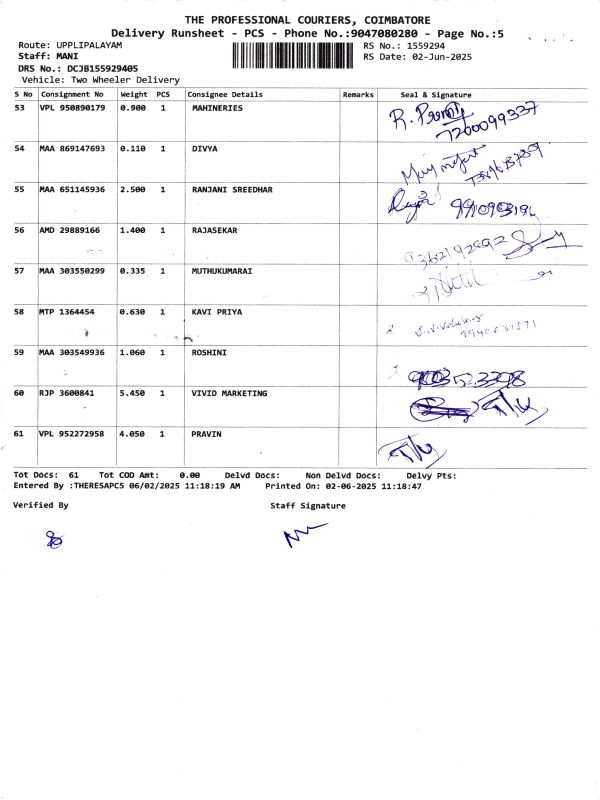 THE PROFESSIONAL COURIERS, COIMBATORE
Delivery Runsheet - PCS - Phone No.:9047080280 - Page No.:5
Route: UPPLIPALAYAM RS No.: 1559294
Staff: MANI RS Date: 02-Jun-2025
DRS No.: DCJB155929405
Vehicle: Two Wheeler Delivery
S No Consignment No Weight PCS Consignee Details Remarks Seal & Signature
53 VPL 950890179 0.900 1 MAHINERIES
7200099337
54 MAA 869147693 0.110 1 DIVYA
55 MAA 651145936 2.500 1 RANJANI SREEDHAR
56 AMD 29889166 1.400 1 RAJASEKAR
57 MAA 303550299 0.335 1 MUTHUKUMARAI
58 MTP 1364454 0.630 1 KAVI PRIYA
59 MAA 303549936 1.060 1 ROSHINI
60 RJP 3600841 5.450 1 VIVID MARKETING
61 VPL 952272958 4.050 1 PRAVIN
Tot Docs: 61 Tot COD Amt: 0.00 Delvd Docs: Non Delvd Docs: Delvy Pts:
Entered By :THERESAPCS 06/02/2025 11:18:19 AM Printed On: 02-06-2025 11:18:47
Verified By Staff Signature